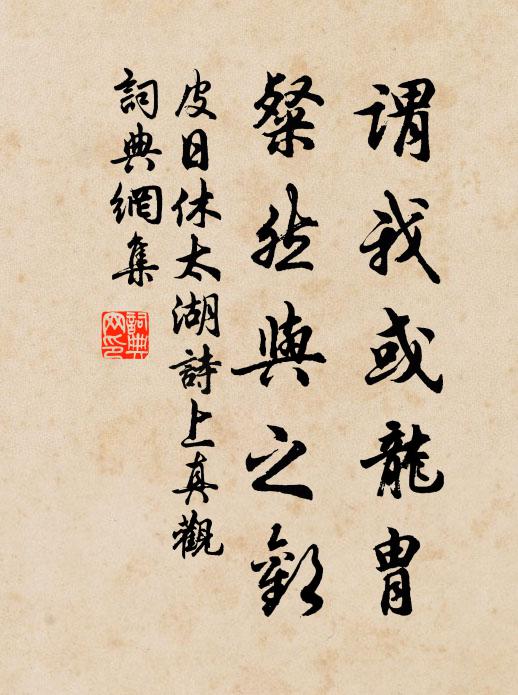 謂我或龍胄
粲然與之歡
皮日休太湖詩上真觀
詞典網集
詞典網印